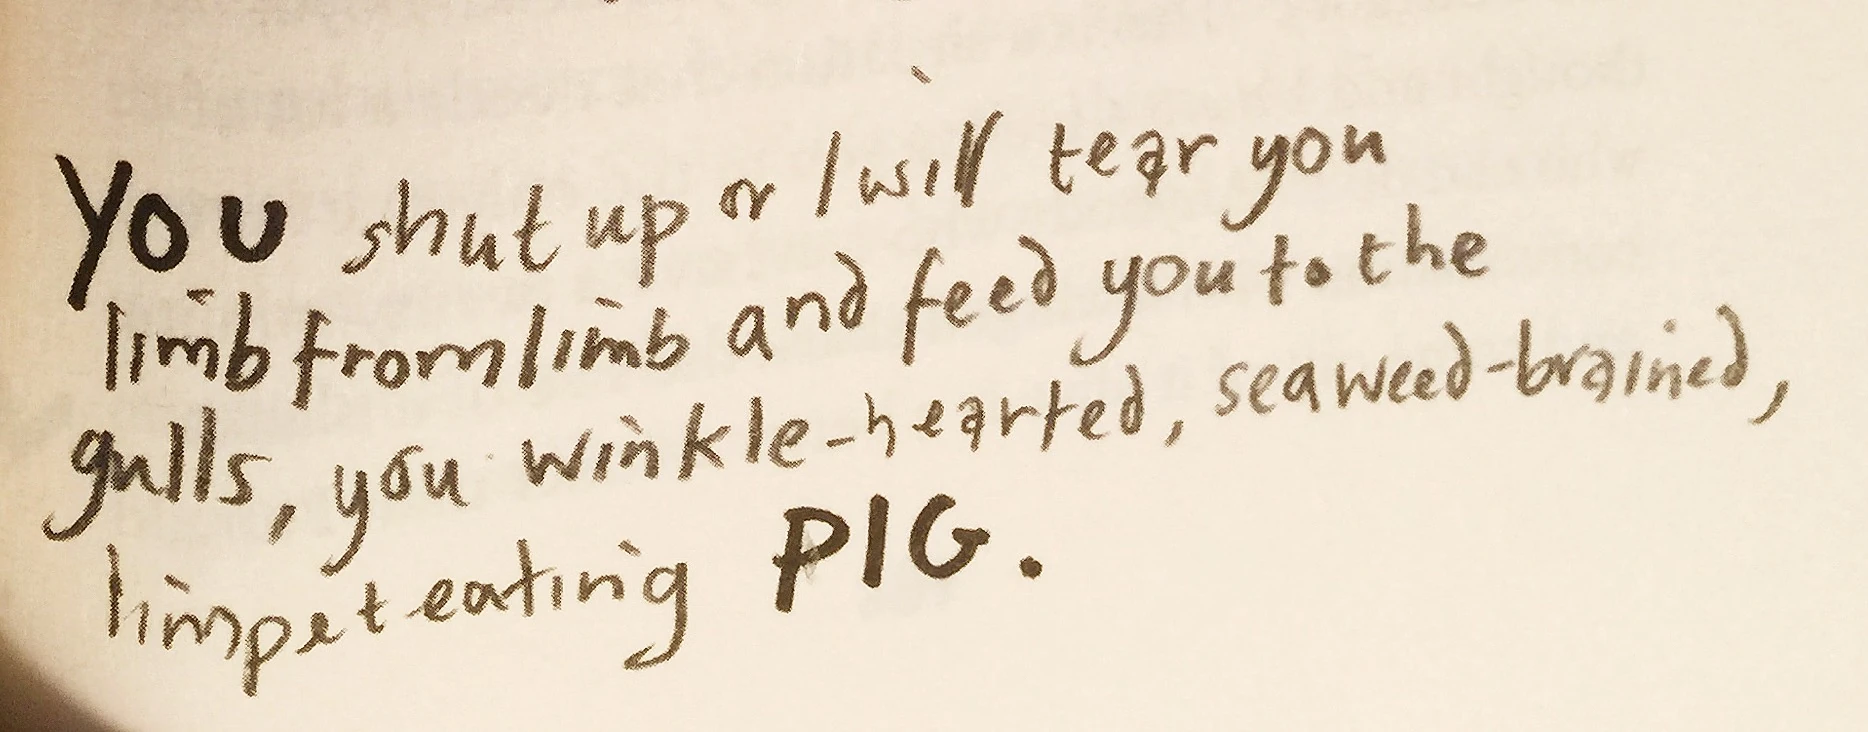 YOU shut up or I will tear you
limb from limb and feed you to the
gulls, you winkle-hearted, seaweed-brained,
limpet eating PIG.